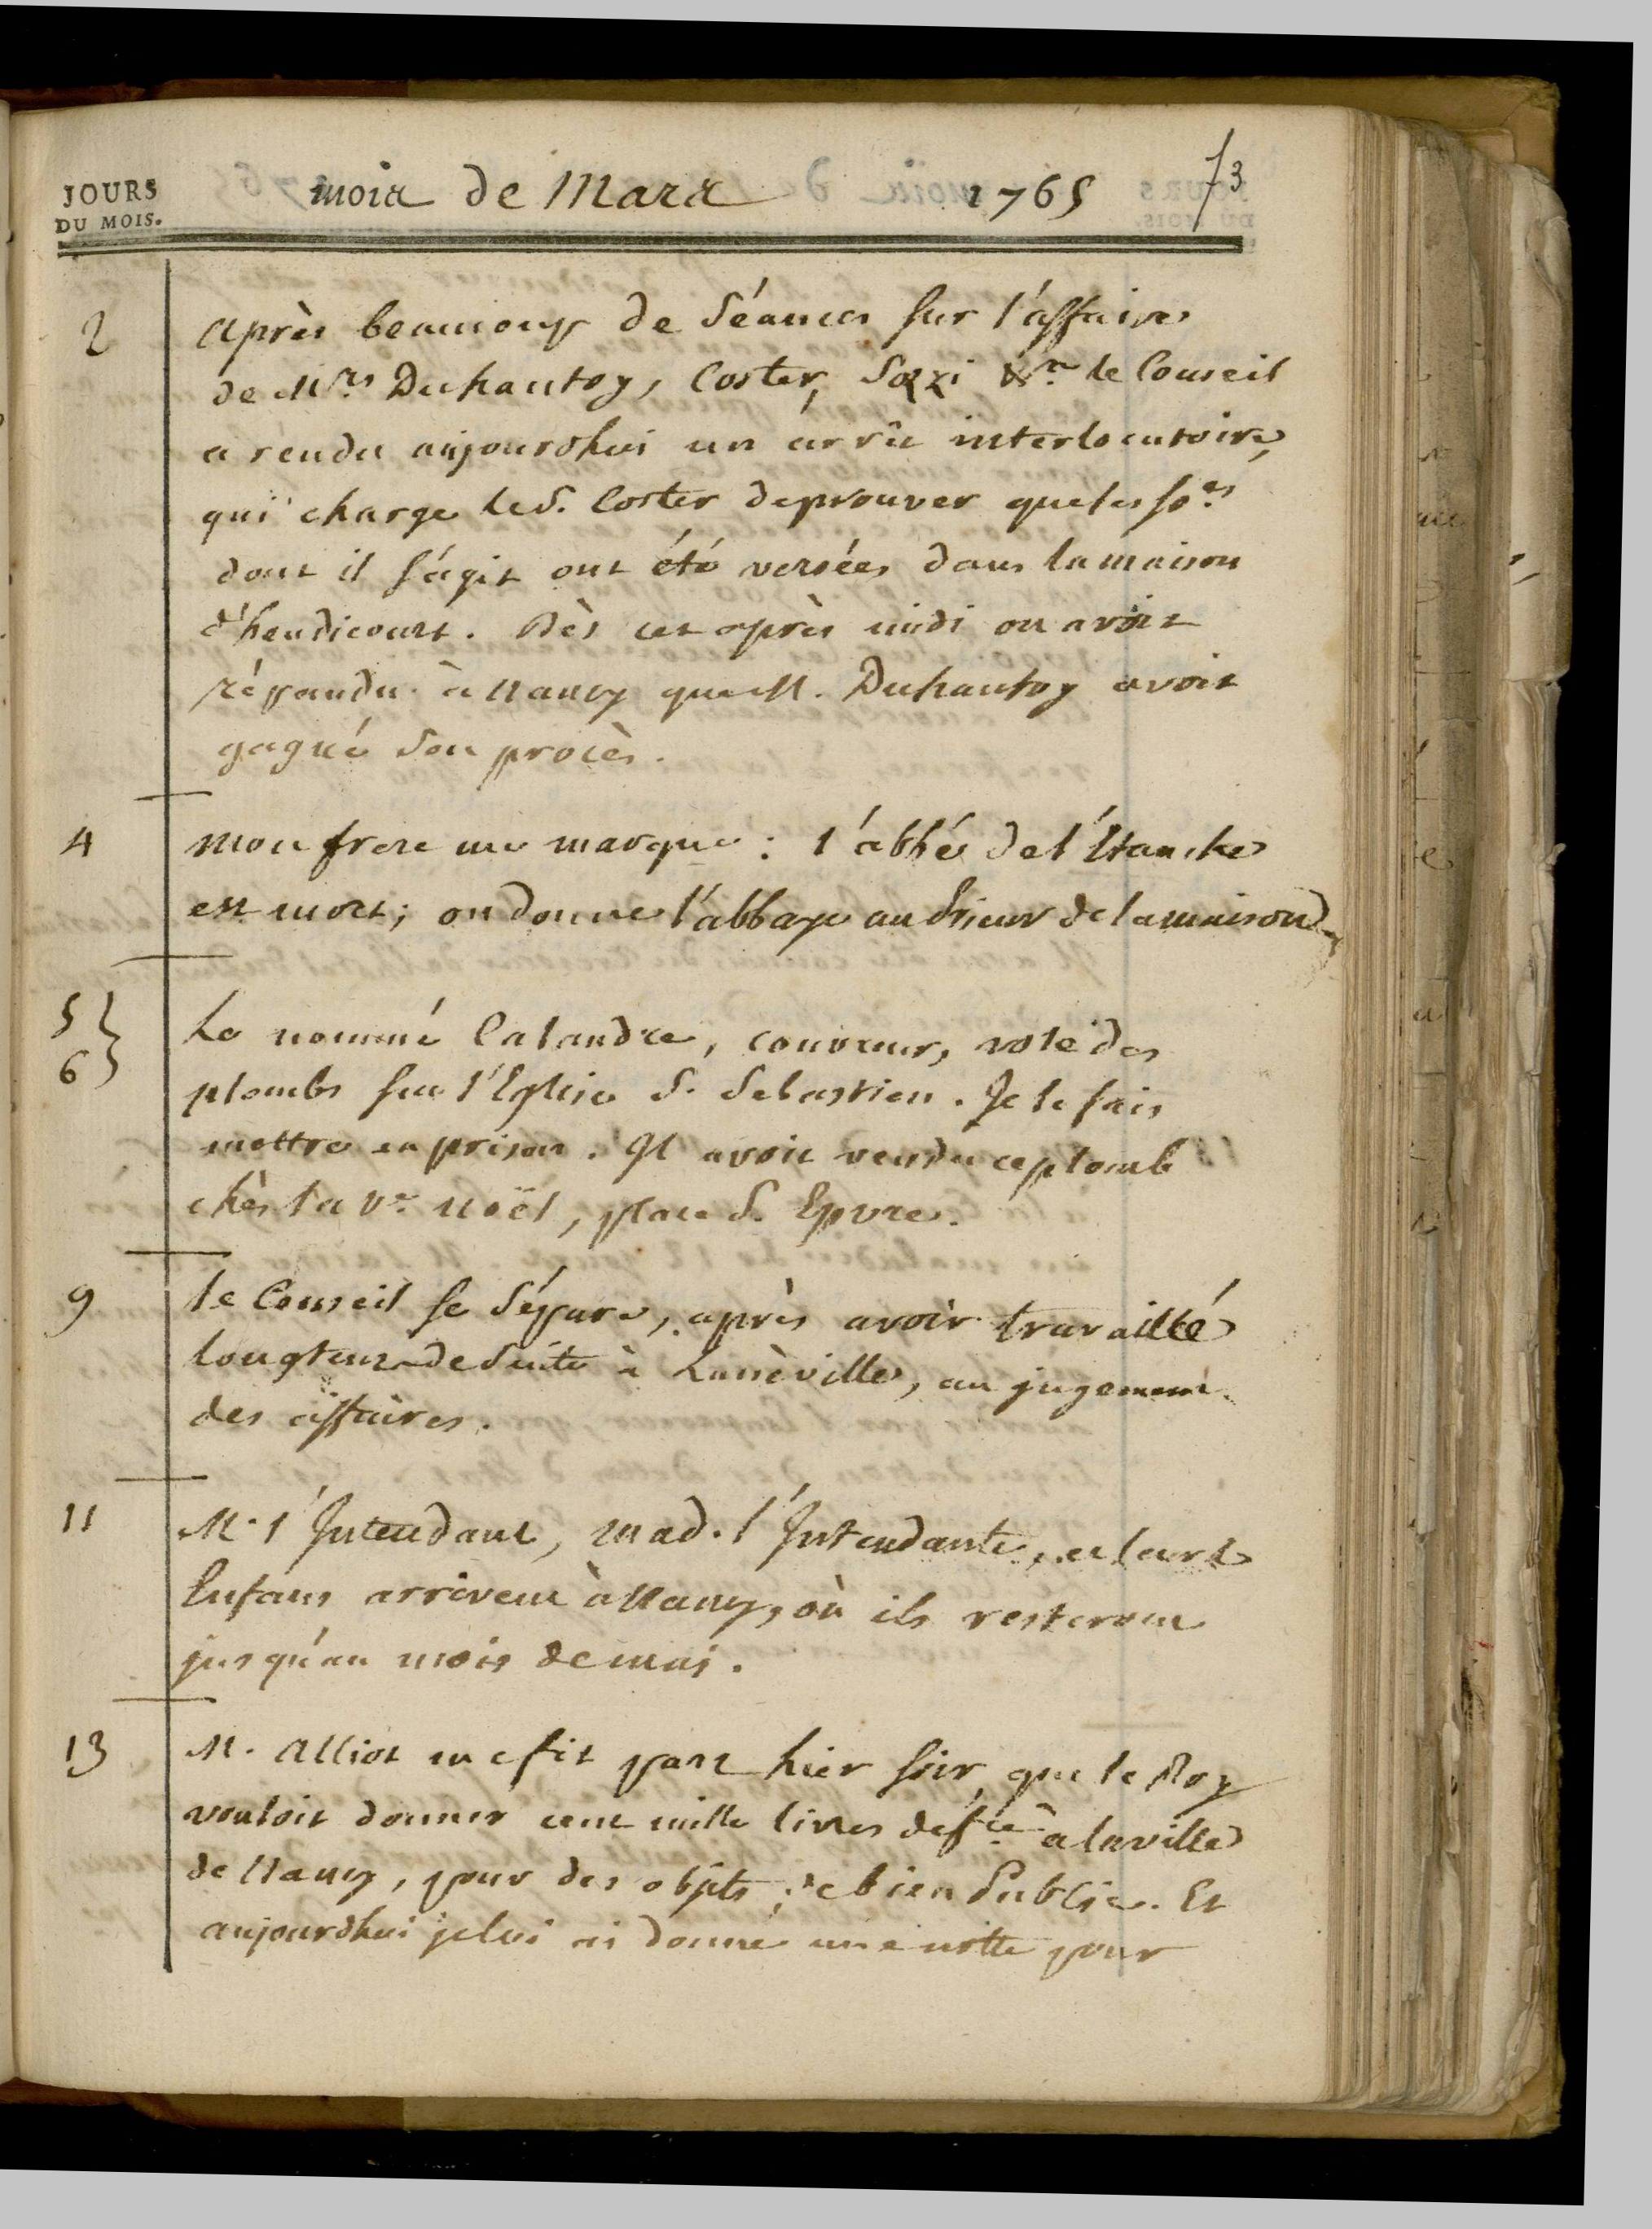 JOURS
DU MOIS.
mois de Mars 1765
73
2 après beaucoup de séances sur l'affaire
de Mrs. Duhautoy, Coster, Sozzi &c. le Conseil
a rendu aujourdhui un arrêt interlocutoire,
qui charge le S. Coster de prouver que les so.es
dont il s'agit ont été versées dans la maison
d'heudicourt. Dès cet après midi on avoit
répandu à Nancy que M. Duhautoy avoit
gagné son procès.
4 mon frere me marque : l'abbé de l'Etanche
est mort ; on donne l'abbaye au Prieur de la maison
5 } Le nommé Calandre, couvreur, vole des
6 } plombs sur l'Eglise S. Sebastien. Je le fais
mettre en prison. Il avoit vendu ce plomb
chès la Ve. Noël, place S. Epvre.
9 le Conseil se sépare, après avoir travaillé
longtems de suite à Lunéville, au jugement
des affaires.
11 M. l'Intendant, Mad. l'Intendante, et leurs
Enfans arrivent à Nancy, où ils resteront
jusqu'au mois de mai.
13 M. Alliot me fit part hier soir, que le Roy
vouloit donner cent mille livres de f.ce à la ville
de Nancy, pour des objets de bien Public. Et
aujourdhui je lui ai donné une notte pour